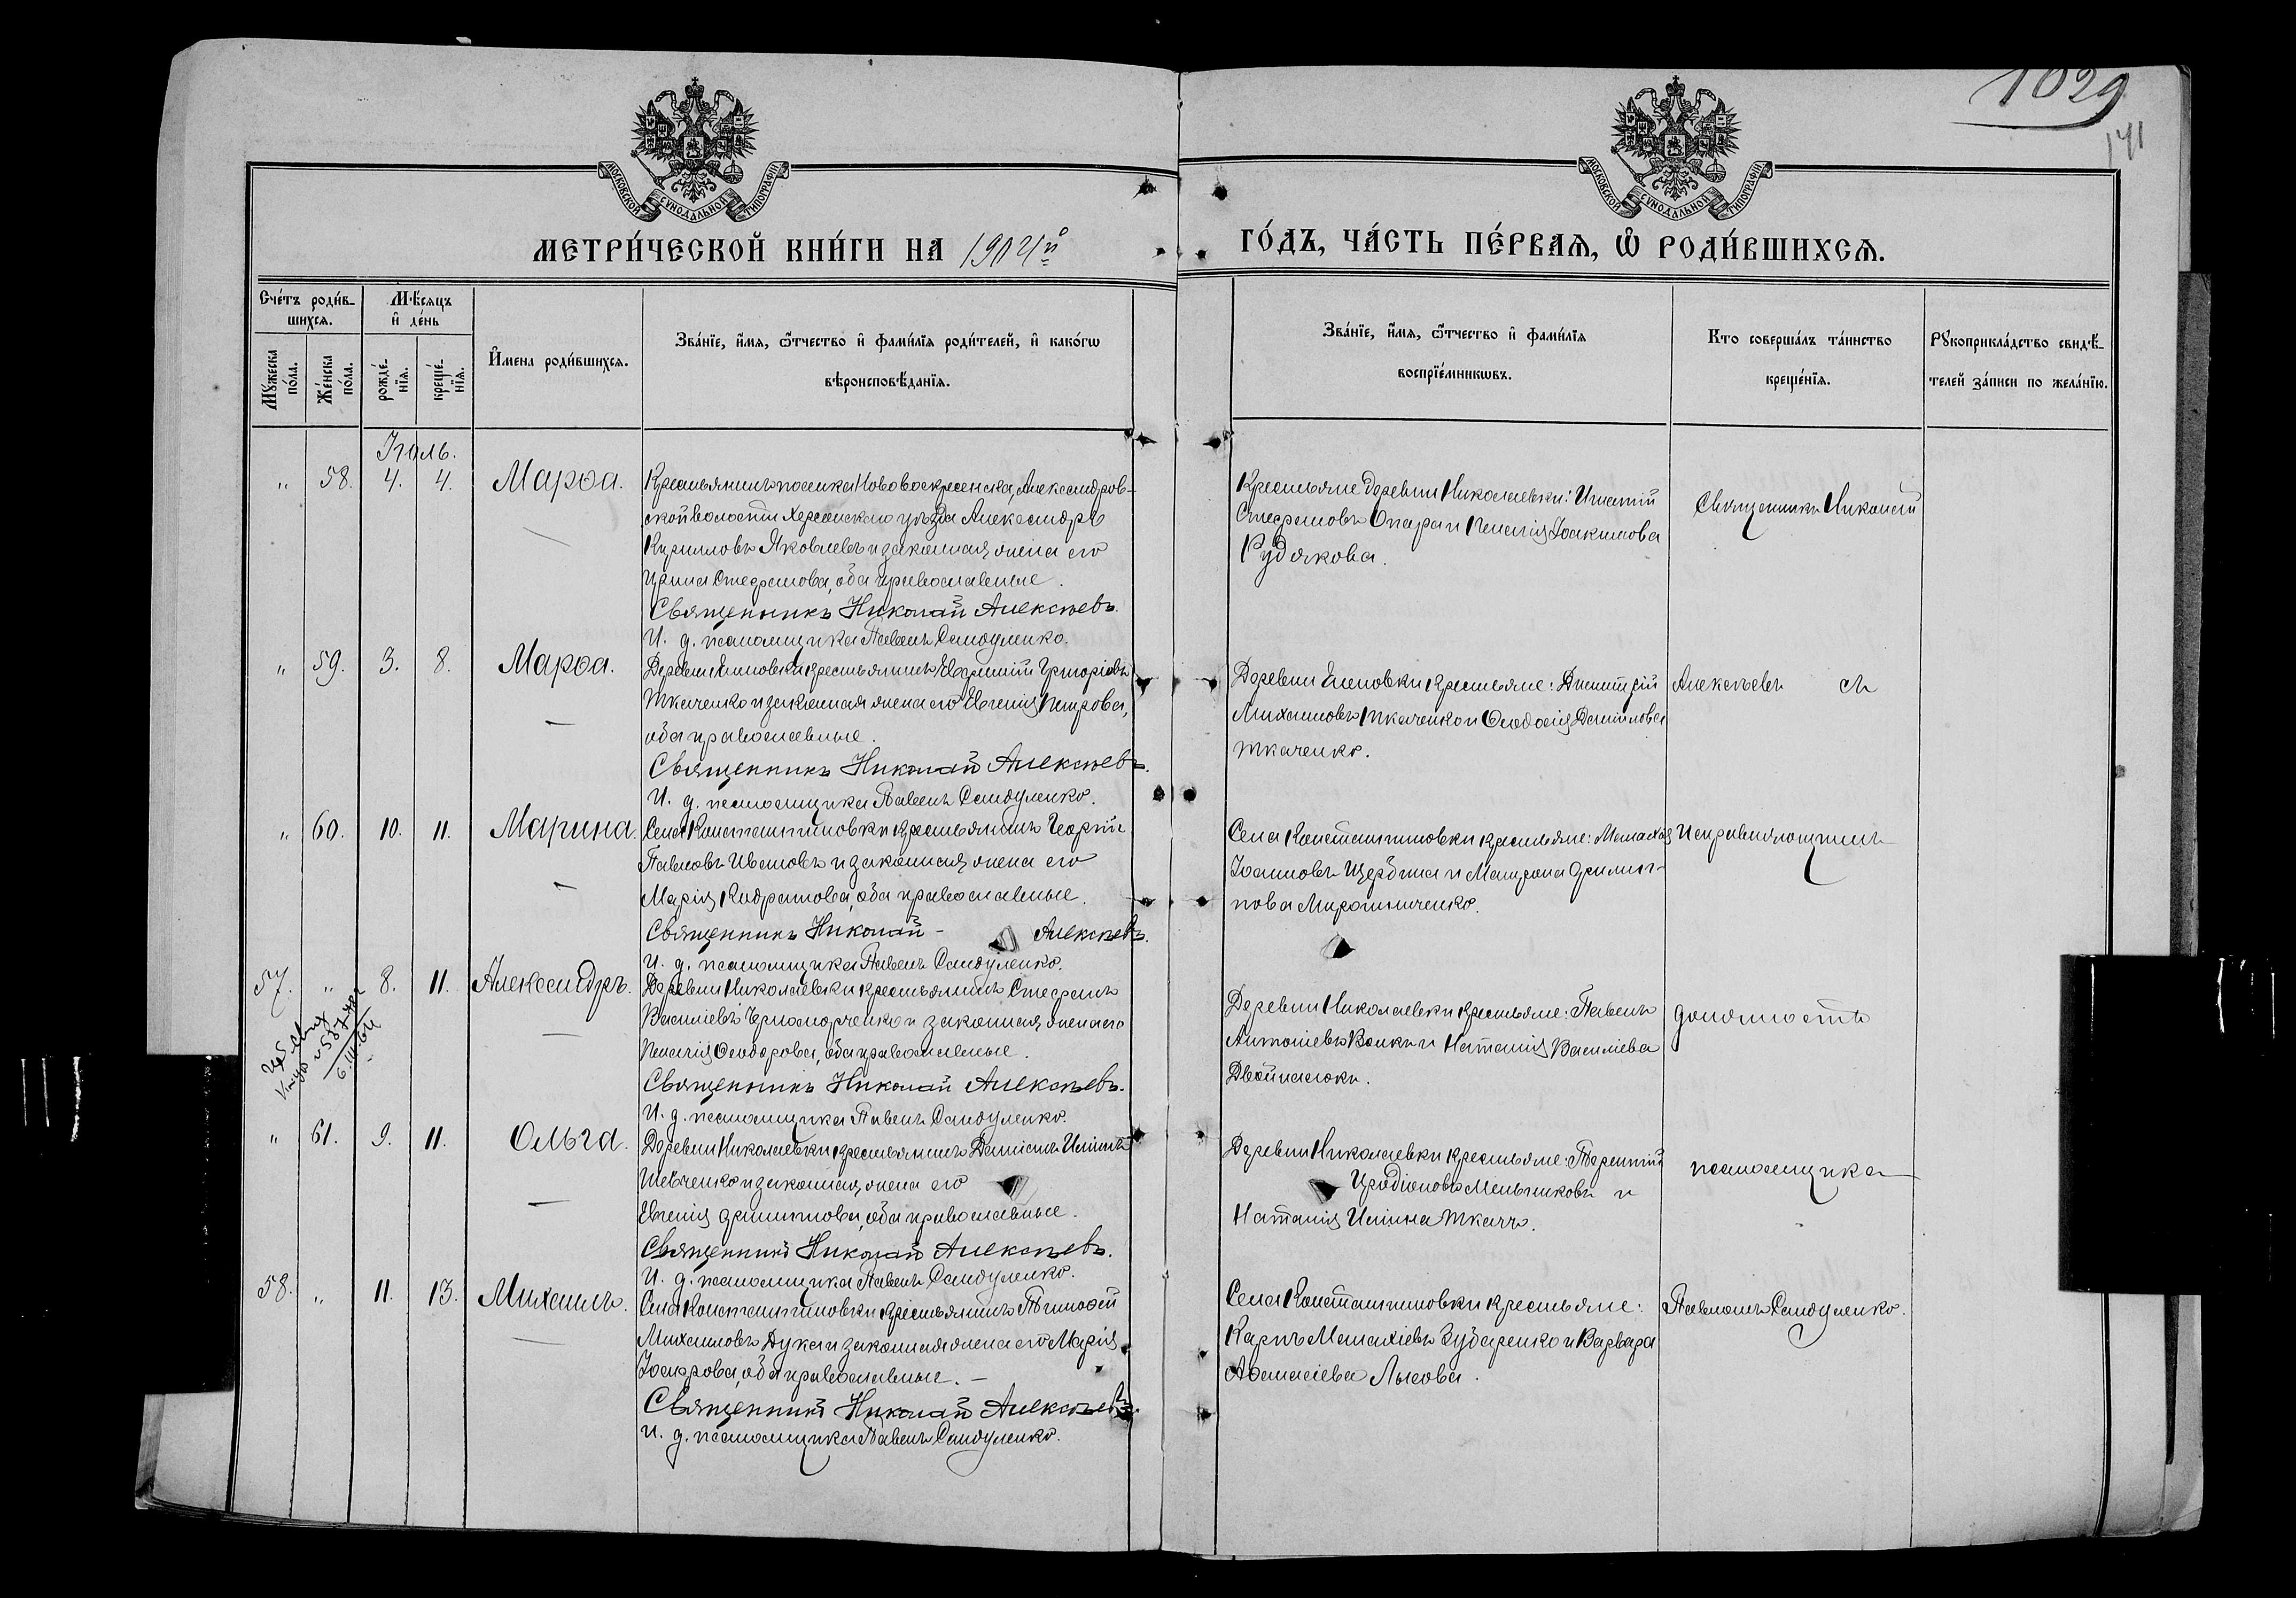 1029
141
МОСКОВСКОЙ СѴНОДАЛЬНОЙ ТИПОГРАФІИ
МОСКОВСКОЙ СѴНОДАЛЬНОЙ ТИПОГРАФІИ
МЕТРИ́ЧЕСКОЙ КНИ́ГИ НА 1904й
ГО́ДЪ, ЧА́СТЬ ПЕ́РВАѦ, Ѡ҆ РОДИ́ВШИХСѦ.
Сче́тъ роди́в-
шихсѧ.
Мѣ́сяцъ
и҆ де́нь
Мꙋ́жеска по́ла.
Же́нска по́ла.
рожде́-
нїѧ.
креще́-
нїѧ.
И҆мена роди́вшихсѧ.
Зва́нїе, и҆́мѧ, ѻ҆́тчество и҆ фами́лїѧ роди́телей, и҆ како́гѡ
вѣроисповѣ́данїѧ.
Зва́нїе, и҆́мѧ, ѻ҆́тчество и҆ фами́лїѧ
воспрїе́мникѡвъ.
Кто соверша́лъ та́инство
креще́нїѧ.
Рꙋкоприкла́дство свидѣ́-
телей за́писи по жела́нїю.
Іюль.
" 58. 4. 4. Марѳа.
Крестьянинъ поселка Нововоскресенска, Александров-
ской волости Херсонскаго уѣзда Александръ
Кирилловъ Яковлевъ и законная жена его
Ирина Стефанова, оба православные.
Священникъ Николай Алексѣевъ.
И. д. псаломщика Павелъ Сандуленко.
Крестьяне деревни Николаевки: Игнатій
Стефановъ Опара и Пелагія Іоакимова
Рудякова.
Священникъ Николай
" 59. 3. 8. Марѳа.
Деревни Еленовки крестьянинъ Евфимій Григоріевъ
Ткаченко и законная жена его Евгенія Петрова,
оба православные.
Священникъ Николай Алексѣевъ.
И. д. псаломщика Павелъ Сандуленко.
Деревни Еленовки крестьяне: Димитрій
Михаиловъ Ткаченко и Ѳеодосія Даніилова
Ткаченко.
Алексѣевъ съ
" 60. 10. 11. Марина.
Села Константиновки крестьянинъ Георгій
Павловъ Ивановъ и законная жена его
Марія Кодратова, оба православные.
Священникъ Николай - Алексѣевъ.
И. д. псаломщика Павелъ Сандуленко.
Села Константиновки крестьяне: Малахія
Іоанновъ Щербина и Матрона Филип-
пова Мирошниченко.
Исправляющимъ
57. " 8. 11. Александръ.
6.III.64
Деревни Николаевки крестьянинъ Стефанъ
Василіевъ и законная жена его
Пелагія Ѳеодорова, оба православные.
Священникъ Николай Алексѣевъ.
И. д. псаломщика Павелъ Сандуленко.
Деревни Николаевки крестьяне: Павелъ
Антоніевъ Волкъ и Наталія Василіева
должность
" 61. 9. 11. Ольга.
Деревни Николаевки крестьянинъ Даніилъ Иліинъ
Шевченко и законная жена его
Евгенія Филиппова, оба православные.
Священникъ Николай Алексѣевъ.
И. д. псаломщика Павелъ Сандуленко.
Деревни Николаевки крестьяне: Терентій
Иродіоновъ Мельниковъ и
Наталія Иліина Ткачъ.
псаломщика
58. " 11. 13. Михаилъ.
Села Константиновки крестьянинъ Тимоѳей
Михаиловъ Дука и законная жена его Марія
оба православные. —
Священникъ Николай Алексѣевъ.
И. д. псаломщика Павелъ Сандуленко.
Села Константиновки крестьяне:
Карпъ Малахіевъ Зубаренко и Варвара
Аѳанасіева Лысова.
Павломъ Сандуленко.